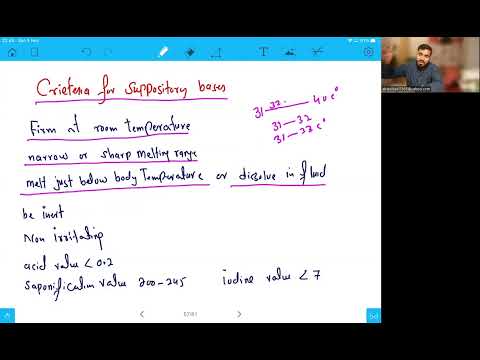 Crieteria for suppository bases
31 32 — 40 c°
31 — 32
31 — 33 c°
Firm at room temperature
narrow or sharp melting range
melt just below body Temperature or dissolve in fluid
be inert
Non irritating
acid value < 0.2
Saponification value 200 - 245 iodine value < 7
57/61